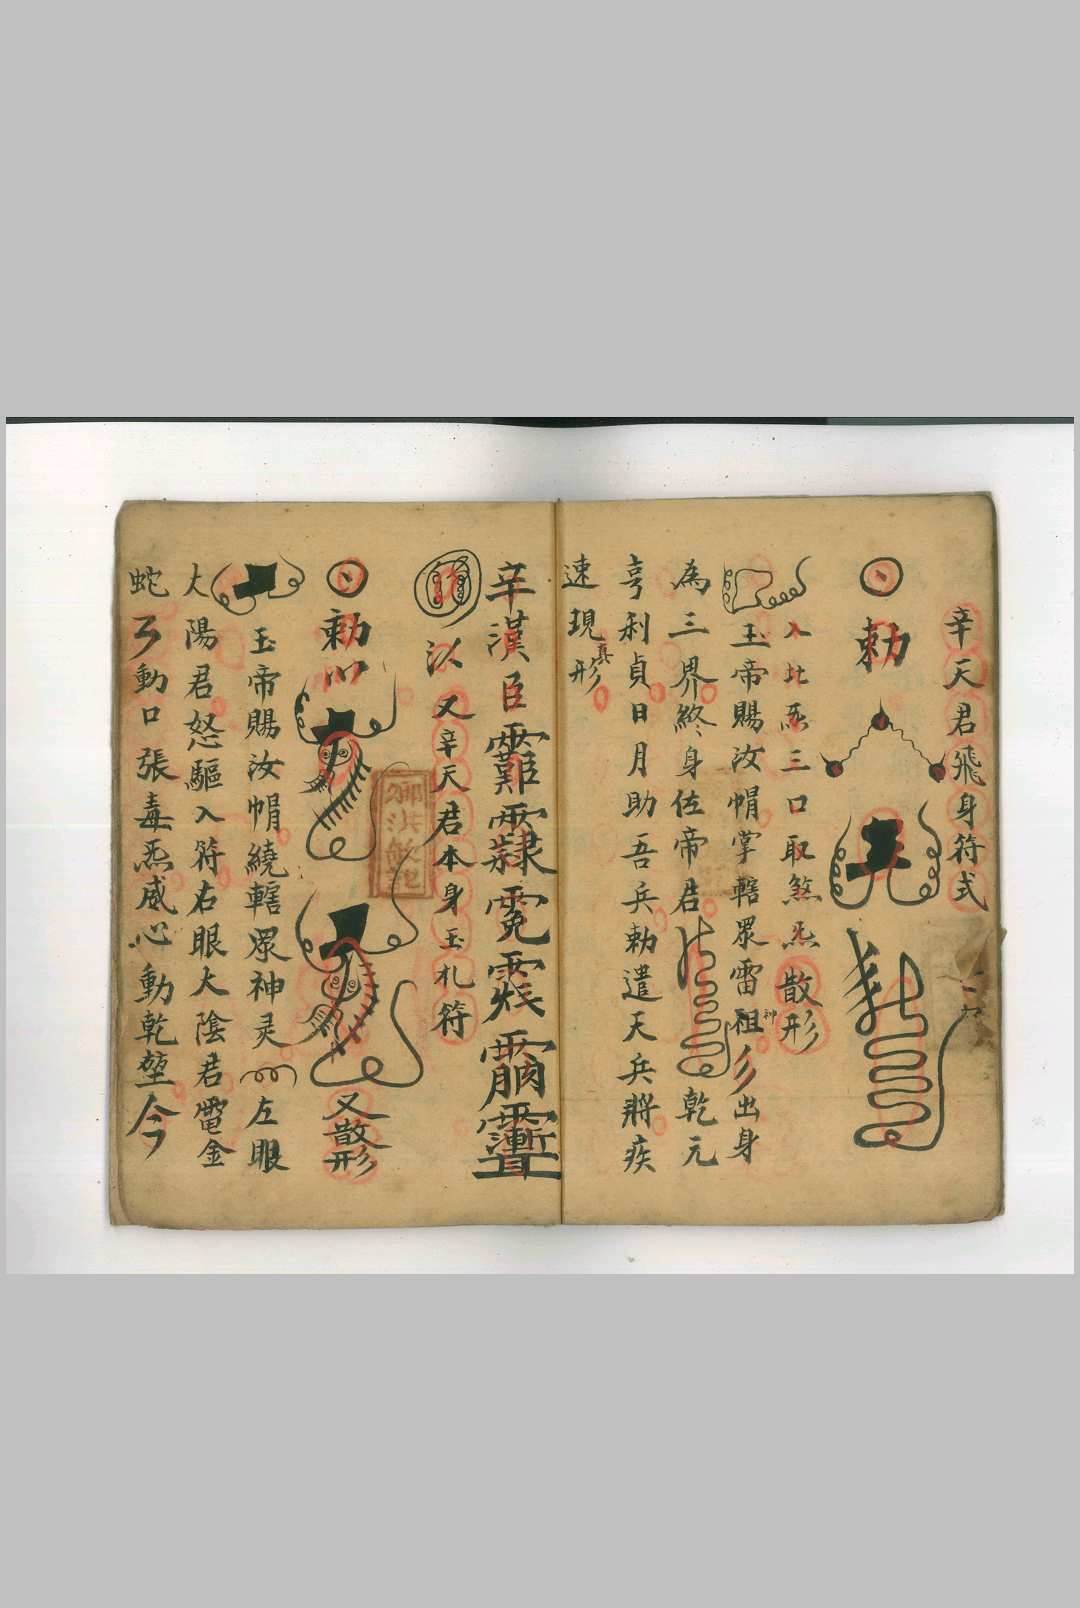 辛天君飛身符式
勅
入比炁三口取煞炁散形
玉帝賜汝帽掌轄眾雷祖神出身
為三界終身佐帝君 乾元
亨利貞日月助吾兵勅遣天兵將疾
速現真形
辛漢臣
以又辛天君本身玉札符
勅 又散形
玉帝賜汝帽繞轄眾神灵 左眼
太陽君怒驅入符右眼大陰君電金
蛇 動口張毒炁威心動乾堃今